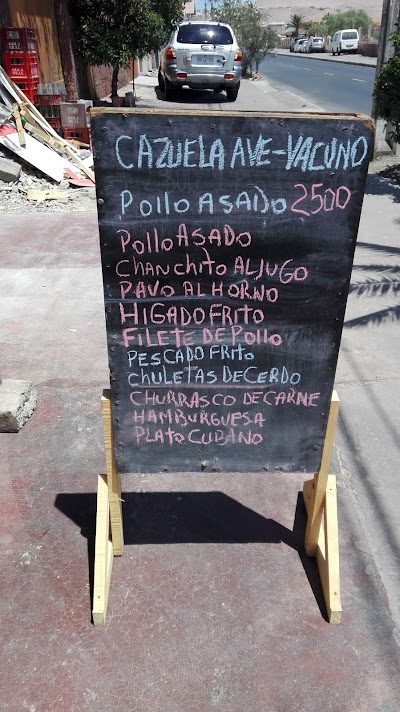 CAZUELA AVE-VACUNO
Pollo ASADO 2500
Pollo ASADO
CHANCHITO AL JUGO
PAVO AL HORNO
HIGADO FRITO
FILETE DE Pollo
PESCADO FRITO
CHULETAS DE CERDO
CHURRASCO DE CARNE
HAMBURGUESA
PLATO CUBANO